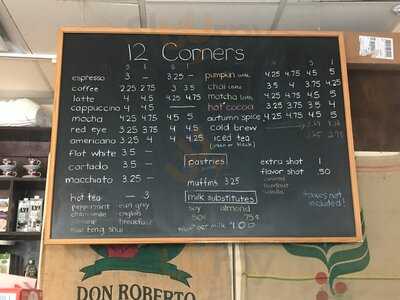 12 Corners
S L S L S L
espresso 3 — 3.25 — pumpkin 4.25 4.75 4.5 5
coffee 2.25 2.75 3 3.5 chai 3.5 4 3.75 4.25
latte 4 4.5 matcha 4.25 4.75 4.5 5
cappuccino 4 4.5 hot cocoa 3.25 3.75 3.5 4
mocha 4.25 4.75 4.5 5 autumn spice 4.25 4.75 4.5 5
red eye 3.25 3.75 4 4.5 cold brew
americano 3.25 4 4 4.25 iced tea
flat white 3.5 —
cortado 3.5 — pastries extra shot 1
macchiato 3.25 — muffins 3.25 flavor shot .50
hot tea — 3 milk substitutes
peppermint earl grey soy almond taxes not
chamomile english 50¢ 75¢ included!
breakfast
feng shui
DON ROBERTO